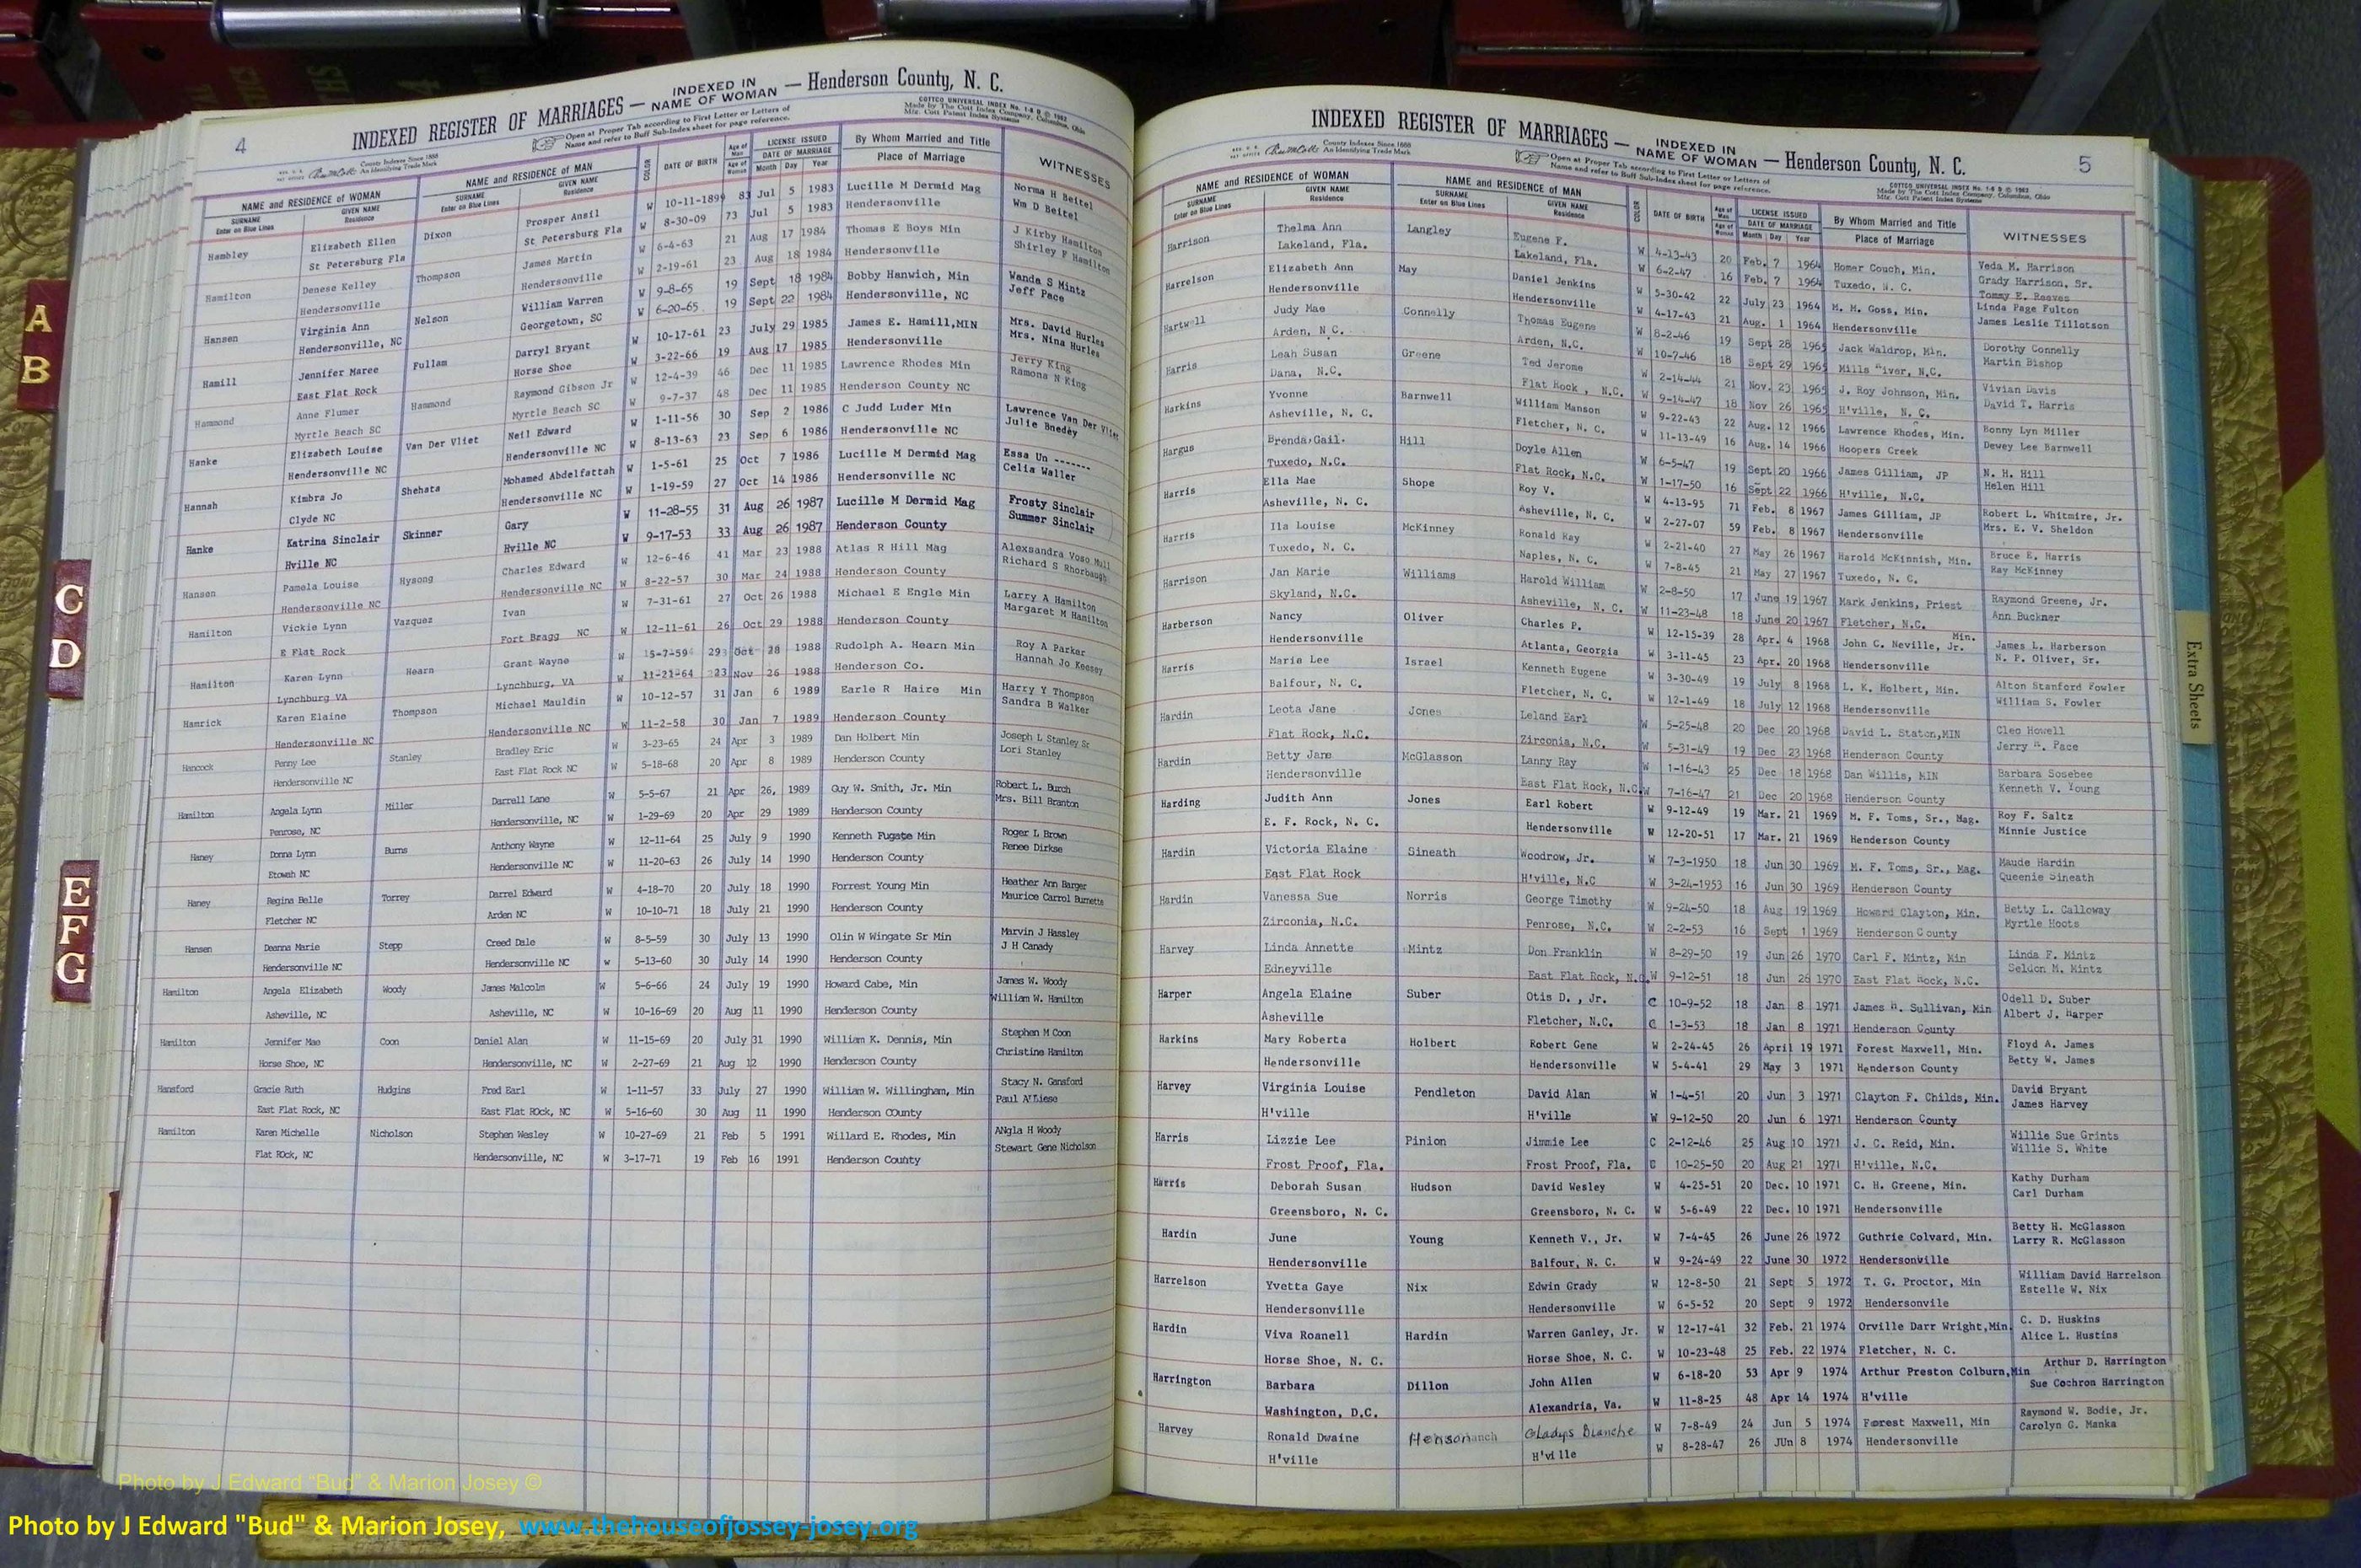 4
INDEXED REGISTER OF MARRIAGES — INDEXED IN NAME OF WOMAN — Henderson County, N. C.
Open at Proper Tab according to First Letter or Letters of
Name and refer to Buff Sub-Index sheet for page reference.
COTTCO UNIVERSAL INDEX No. 1-8 B © 1962
Made by The Cott Index Company, Columbus, Ohio
Mfr. Cott Patent Index Systems
County Indexes Since 1888
An Identifying Trade Mark
NAME and RESIDENCE OF WOMAN NAME and RESIDENCE OF MAN COLOR DATE OF BIRTH Age of Man Age of Woman LICENSE ISSUED By Whom Married and Title WITNESSES
SURNAME Enter on Blue Lines GIVEN NAME Residence SURNAME Enter on Blue Lines GIVEN NAME Residence DATE OF MARRIAGE Month Day Year Place of Marriage
Hambley Elizabeth Ellen Dixon Prosper Ansil W 10-11-1899 83 Jul 5 1983 Lucille M Dermid Mag Norma H Beitel
St Petersburg Fla St Petersburg Fla W 8-30-09 73 Jul 5 1983 Hendersonville Wm D Beitel
Hamilton Denese Kelley Thompson James Martin W 6-4-63 21 Aug 17 1984 Thomas E Boys Min J Kirby Hamilton
Hendersonville Hendersonville W 2-19-61 23 Aug 18 1984 Hendersonville Shirley F Hamilton
Hansen Virginia Ann Nelson William Warren W 9-8-65 19 Sept 18 1984 Bobby Hanwich, Min Wanda S Mintz
Hendersonville, NC Georgetown, SC W 6-20-65 19 Sept 22 1984 Hendersonville, NC Jeff Pace
Hamill Jennifer Maree Fullam Darryl Bryant W 10-17-61 23 July 29 1985 James E. Hamill,MIN Mrs. David Hurles
East Flat Rock Horse Shoe W 3-22-66 19 Aug 17 1985 Hendersonville Mrs. Nina Hurles
Hammond Anne Flumer Hammond Raymond Gibson Jr W 12-4-39 46 Dec 11 1985 Lawrence Rhodes Min Jerry King
Myrtle Beach SC Myrtle Beach SC W 9-7-37 48 Dec 11 1985 Henderson County NC Ramona N King
Hanke Elizabeth Louise Van Der Vliet Neil Edward W 1-11-56 30 Sep 2 1986 C Judd Luder Min Lawrence Van Der Vliet
Hendersonville NC Hendersonville NC W 8-13-63 23 Sep 6 1986 Hendersonville NC Julie Bnedey
Hannah Kimbra Jo Shehata Mohamed Abdelfattah W 1-5-61 25 Oct 7 1986 Lucille M Dermid Mag Essa Un -------
Clyde NC Hendersonville NC W 1-19-59 27 Oct 14 1986 Hendersonville NC Celia Waller
Hanke Katrina Sinclair Skinner Gary W 11-28-55 31 Aug 26 1987 Lucille M Dermid Mag Frosty Sinclair
Hville NC Hville NC W 9-17-53 33 Aug 26 1987 Henderson County Summer Sinclair
Hansen Pamela Louise Hysong Charles Edward W 12-6-46 41 Mar 23 1988 Atlas R Hill Mag Alexsandra Voso Mull
Hendersonville NC Hendersonville NC W 8-22-57 30 Mar 24 1988 Henderson County Richard S Rhorbaugh
Hamilton Vickie Lynn Vazquez Ivan W 7-31-61 27 Oct 26 1988 Michael E Engle Min Larry A Hamilton
E Flat Rock Fort Bragg NC W 12-11-61 26 Oct 29 1988 Henderson County Margaret M Hamilton
Hamilton Karen Lynn Hearn Grant Wayne W 15-7-59 29 Oct 28 1988 Rudolph A. Hearn Min Roy A Parker
Lynchburg VA Lynchburg, VA W 11-21-64 23 Nov 26 1988 Henderson Co. Hannah Jo Keesey
Hamrick Karen Elaine Thompson Michael Mauldin W 10-12-57 31 Jan 6 1989 Earle R Haire Min Harry Y Thompson
Hendersonville NC Hendersonville NC W 11-2-58 30 Jan 7 1989 Henderson County Sandra B Walker
Hancock Penny Lee Stanley Bradley Eric W 3-23-65 24 Apr 3 1989 Dan Holbert Min Joseph L Stanley Sr
Hendersonville NC East Flat Rock NC W 5-18-68 20 Apr 8 1989 Henderson County Lori Stanley
Hamilton Angela Lynn Miller Darrell Lane W 5-5-67 21 Apr 26, 1989 Guy W. Smith, Jr. Min Robert L. Burch
Penrose, NC Hendersonville, NC W 1-29-69 20 Apr 29 1989 Henderson County Mrs. Bill Branton
Haney Donna Lynn Burns Anthony Wayne W 12-11-64 25 July 9 1990 Kenneth Fugate Min Roger L Brown
Etowah NC Hendersonville NC W 11-20-63 26 July 14 1990 Henderson County Renee Dirkse
Haney Regina Belle Torrey Darrel Edward W 4-18-70 20 July 18 1990 Forrest Young Min Heather Ann Barger
Fletcher NC Arden NC W 10-10-71 18 July 21 1990 Henderson County Maurice Carrol Burnette
Hansen Deanna Marie Stepp Creed Dale W 8-5-59 30 July 13 1990 Olin W Wingate Sr Min Marvin J Hassley
Hendersonville NC Hendersonville NC w 5-13-60 30 July 14 1990 Henderson County J H Canady
Hamilton Angela Elizabeth Woody James Malcolm W 5-6-66 24 July 19 1990 Howard Cabe, Min James W. Woody
Asheville, NC Asheville, NC W 10-16-69 20 Aug 11 1990 Henderson County William W. Hamilton
Hamilton Jennifer Mae Coon Daniel Alan W 11-15-69 20 July 31 1990 William K. Dennis, Min Stephen M Coon
Horse Shoe, NC Hendersonville, NC W 2-27-69 21 Aug 12 1990 Henderson County Christine Hamilton
Hansford Gracie Ruth Hudgins Fred Earl W 1-11-57 33 July 27 1990 William W. Willingham, Min Stacy N. Gansford
East Flat Rock, NC East Flat ROck, NC W 5-16-60 30 Aug 11 1990 Henderson COunty Paul A'Liese
Hamilton Karen Michelle Nicholson Stephen Wesley W 10-27-69 21 Feb 5 1991 Willard E. Rhodes, Min ANgla H Woody
Flat ROck, NC Hendersonville, NC W 3-17-71 19 Feb 16 1991 Henderson County Stewart Gene Nicholson
5
INDEXED REGISTER OF MARRIAGES — INDEXED IN NAME OF WOMAN — Henderson County, N. C.
County Indexes Since 1888
An Identifying Trade Mark
Open at Proper Tab according to First Letter or Letters of
Name and refer to Buff Sub-Index sheet for page reference.
COTTCO UNIVERSAL INDEX No. 1-8 B © 1962
Made by The Cott Index Company, Columbus, Ohio
Mfr. Cott Patent Index Systems
NAME and RESIDENCE OF WOMAN NAME and RESIDENCE OF MAN COLOR DATE OF BIRTH Age of Man Age of Woman LICENSE ISSUED By Whom Married and Title WITNESSES
SURNAME Enter on Blue Lines GIVEN NAME Residence SURNAME Enter on Blue Lines GIVEN NAME Residence DATE OF MARRIAGE Month Day Year Place of Marriage
Harrison Thelma Ann Langley Eugene F. W 4-13-43 20 Feb. 7 1964 Homer Couch, Min. Veda M. Harrison
Lakeland, Fla. Lakeland, Fla. W 6-2-47 16 Feb. 7 1964 Tuxedo, N. C. Grady Harrison, Sr.
Harrelson Elizabeth Ann May Daniel Jenkins W 5-30-42 22 July 23 1964 M. M. Goss, Min. Tommy E. Reaves
Linda Page Fulton
Hendersonville Hendersonville W 4-17-43 21 Aug. 1 1964 Hendersonville James Leslie Tillotson
Hartwell Judy Mae Connelly Thomas Eugene W 8-2-46 19 Sept 28 1965 Jack Waldrop, Min. Dorothy Connelly
Arden, N C. Arden, N.C. W 10-7-46 18 Sept 29 1965 Mills River, N.C. Martin Bishop
Harris Leah Susan Greene Ted Jerome W 2-14-44 21 Nov. 23 1965 J. Roy Johnson, Min. Vivian Davis
Dana, N.C. Flat Rock , N.C. W 9-14-47 18 Nov 26 1965 H'ville, N. C. David T. Harris
Harkins Yvonne Barnwell William Manson W 9-22-43 22 Aug. 12 1966 Lawrence Rhodes, Min. Bonny Lyn Miller
Asheville, N. C. Fletcher, N. C. W 11-13-49 16 Aug. 14 1966 Hoopers Creek Dewey Lee Barnwell
Hargus Brenda Gail. Hill Doyle Allen W 6-5-47 19 Sept 20 1966 James Gilliam, JP N. H. Hill
Tuxedo, N.C. Flat Rock, N.C. W 1-17-50 16 Sept 22 1966 H'ville, N.C. Helen Hill
Harris Ella Mae Shope Roy V. W 4-13-95 71 Feb. 8 1967 James Gilliam, JP Robert L. Whitmire, Jr.
Asheville, N. C. Asheville, N. C. W 2-27-07 59 Feb. 8 1967 Hendersonville Mrs. E. V. Sheldon
Harris Ila Louise McKinney Ronald Ray W 2-21-40 27 May 26 1967 Harold McKinnish, Min. Bruce E. Harris
Tuxedo, N. C. Naples, N. C. W 7-8-45 21 May 27 1967 Tuxedo, N. C. Ray McKinney
Harrison Jan Marie Williams Harold William W 2-8-50 17 June 19 1967 Mark Jenkins, Priest Raymond Greene, Jr.
Skyland, N.C. Asheville, N. C. W 11-23-48 18 June 20 1967 Fletcher, N.C. Ann Buckner
Harberson Nancy Oliver Charles P. W 12-15-39 28 Apr. 4 1968 John C. Neville, Jr. Min. James L. Harberson
Hendersonville Atlanta, Georgia W 3-11-45 23 Apr. 20 1968 Hendersonville N. P. Oliver, Sr.
Harris Marie Lee Israel Kenneth Eugene W 3-30-49 19 July 8 1968 L. K. Holbert, Min. Alton Stanford Fowler
Balfour, N. C. Fletcher, N. C. W 12-1-49 18 July 12 1968 Hendersonville William S. Fowler
Hardin Leota Jane Jones Leland Earl W 5-25-48 20 Dec 20 1968 David L. Staton,MIN Cleo Howell
Flat Rock, N.C. Zirconia, N.C. W 5-31-49 19 Dec 23 1968 Henderson County Jerry R. Pace
Hardin Betty Jane McGlasson Lanny Ray W 1-16-43 25 Dec 18 1968 Dan Willis, MIN Barbara Sosebee
Hendersonville East Flat Rock, N.C. W 7-16-47 21 Dec 20 1968 Henderson County Kenneth V. Young
Harding Judith Ann Jones Earl Robert W 9-12-49 19 Mar. 21 1969 M. F. Toms, Sr., Mag. Roy F. Saltz
E. F. Rock, N. C. Hendersonville W 12-20-51 17 Mar. 21 1969 Henderson County Minnie Justice
Hardin Victoria Elaine Sineath Woodrow, Jr. W 7-3-1950 18 Jun 30 1969 M. F. Toms, Sr., Mag. Maude Hardin
East Flat Rock H'ville, N.C W 3-24-1953 16 Jun 30 1969 Henderson County Queenie Sineath
Hardin Vanessa Sue Norris George Timothy W 9-24-50 18 Aug 19 1969 Howard Clayton, Min. Betty L. Galloway
Zirconia, N.C. Penrose, N.C. W 2-2-53 16 Sept 1 1969 Henderson County Myrtle Hoots
Harvey Linda Annette Mintz Don Franklin W 8-29-50 19 Jun 26 1970 Carl F. Mintz, Min Linda F. Mintz
Edneyville East Flat Rock, N.C. W 9-12-51 18 Jun 26 1970 East Flat Rock, N.C. Seldon M. Mintz
Harper Angela Elaine Suber Otis D. , Jr. C 10-9-52 18 Jan 8 1971 James H. Sullivan, Min Odell D. Suber
Asheville Fletcher, N.C. C 1-3-53 18 Jan 8 1971 Henderson County Albert J. Harper
Harkins Mary Roberta Holbert Robert Gene W 2-24-45 26 April 19 1971 Forest Maxwell, Min. Floyd A. James
Hendersonville Hendersonville W 5-4-41 29 May 3 1971 Henderson County Betty W. James
Harvey Virginia Louise Pendleton David Alan W 1-4-51 20 Jun 3 1971 Clayton F. Childs, Min. David Bryant
H'ville H'ville W 9-12-50 20 Jun 6 1971 Henderson County James Harvey
Harris Lizzie Lee Pinion Jimmie Lee C 2-12-46 25 Aug 10 1971 J. C. Reid, Min. Willie Sue Grints
Frost Proof, Fla. Frost Proof, Fla. C 10-25-50 20 Aug 21 1971 H'ville, N.C. Willie S. White
Harris Deborah Susan Hudson David Wesley W 4-25-51 20 Dec. 10 1971 C. H. Greene, Min. Kathy Durham
Greensboro, N. C. Greensboro, N. C. W 5-6-49 22 Dec. 10 1971 Hendersonville Carl Durham
Hardin June Young Kenneth V., Jr. W 7-4-45 26 June 26 1972 Guthrie Colvard, Min. Betty H. McGlasson
Hendersonville Balfour, N. C. W 9-24-49 22 June 30 1972 Hendersonville Larry R. McGlasson
Harrelson Yvetta Gaye Nix Edwin Grady W 12-8-50 21 Sept 5 1972 T. G. Proctor, Min William David Harrelson
Hendersonville Hendersonville W 6-5-52 20 Sept 9 1972 Hendersonvile Estelle W. Nix
Hardin Viva Roanell Hardin Warren Ganley, Jr. W 12-17-41 32 Feb. 21 1974 Orville Darr Wright,Min. C. D. Huskins
Horse Shoe, N. C. Horse Shoe, N. C. W 10-23-48 25 Feb. 22 1974 Fletcher, N. C. Alice L. Hustins
Harrington Barbara Dillon John Allen W 6-18-20 53 Apr 9 1974 Arthur Preston Colburn,Min Arthur D. Harrington
Washington, D.C. Alexandria, Va. W 11-8-25 48 Apr 14 1974 H'ville Sue Cochron Harrington
Harvey Ronald Dwaine Henson Gladys Blanche W 7-8-49 24 Jun 5 1974 Forest Maxwell, Min Raymond W. Bodie, Jr.
H'ville H'ville W 8-28-47 26 JUn 8 1974 Hendersonville Carolyn G. Manka
A
B
C
D
E
F
G
Extra Sheets
Photo by J Edward "Bud" & Marion Josey ©
Photo by J Edward "Bud" & Marion Josey, www.thehouseofjossey-josey.org